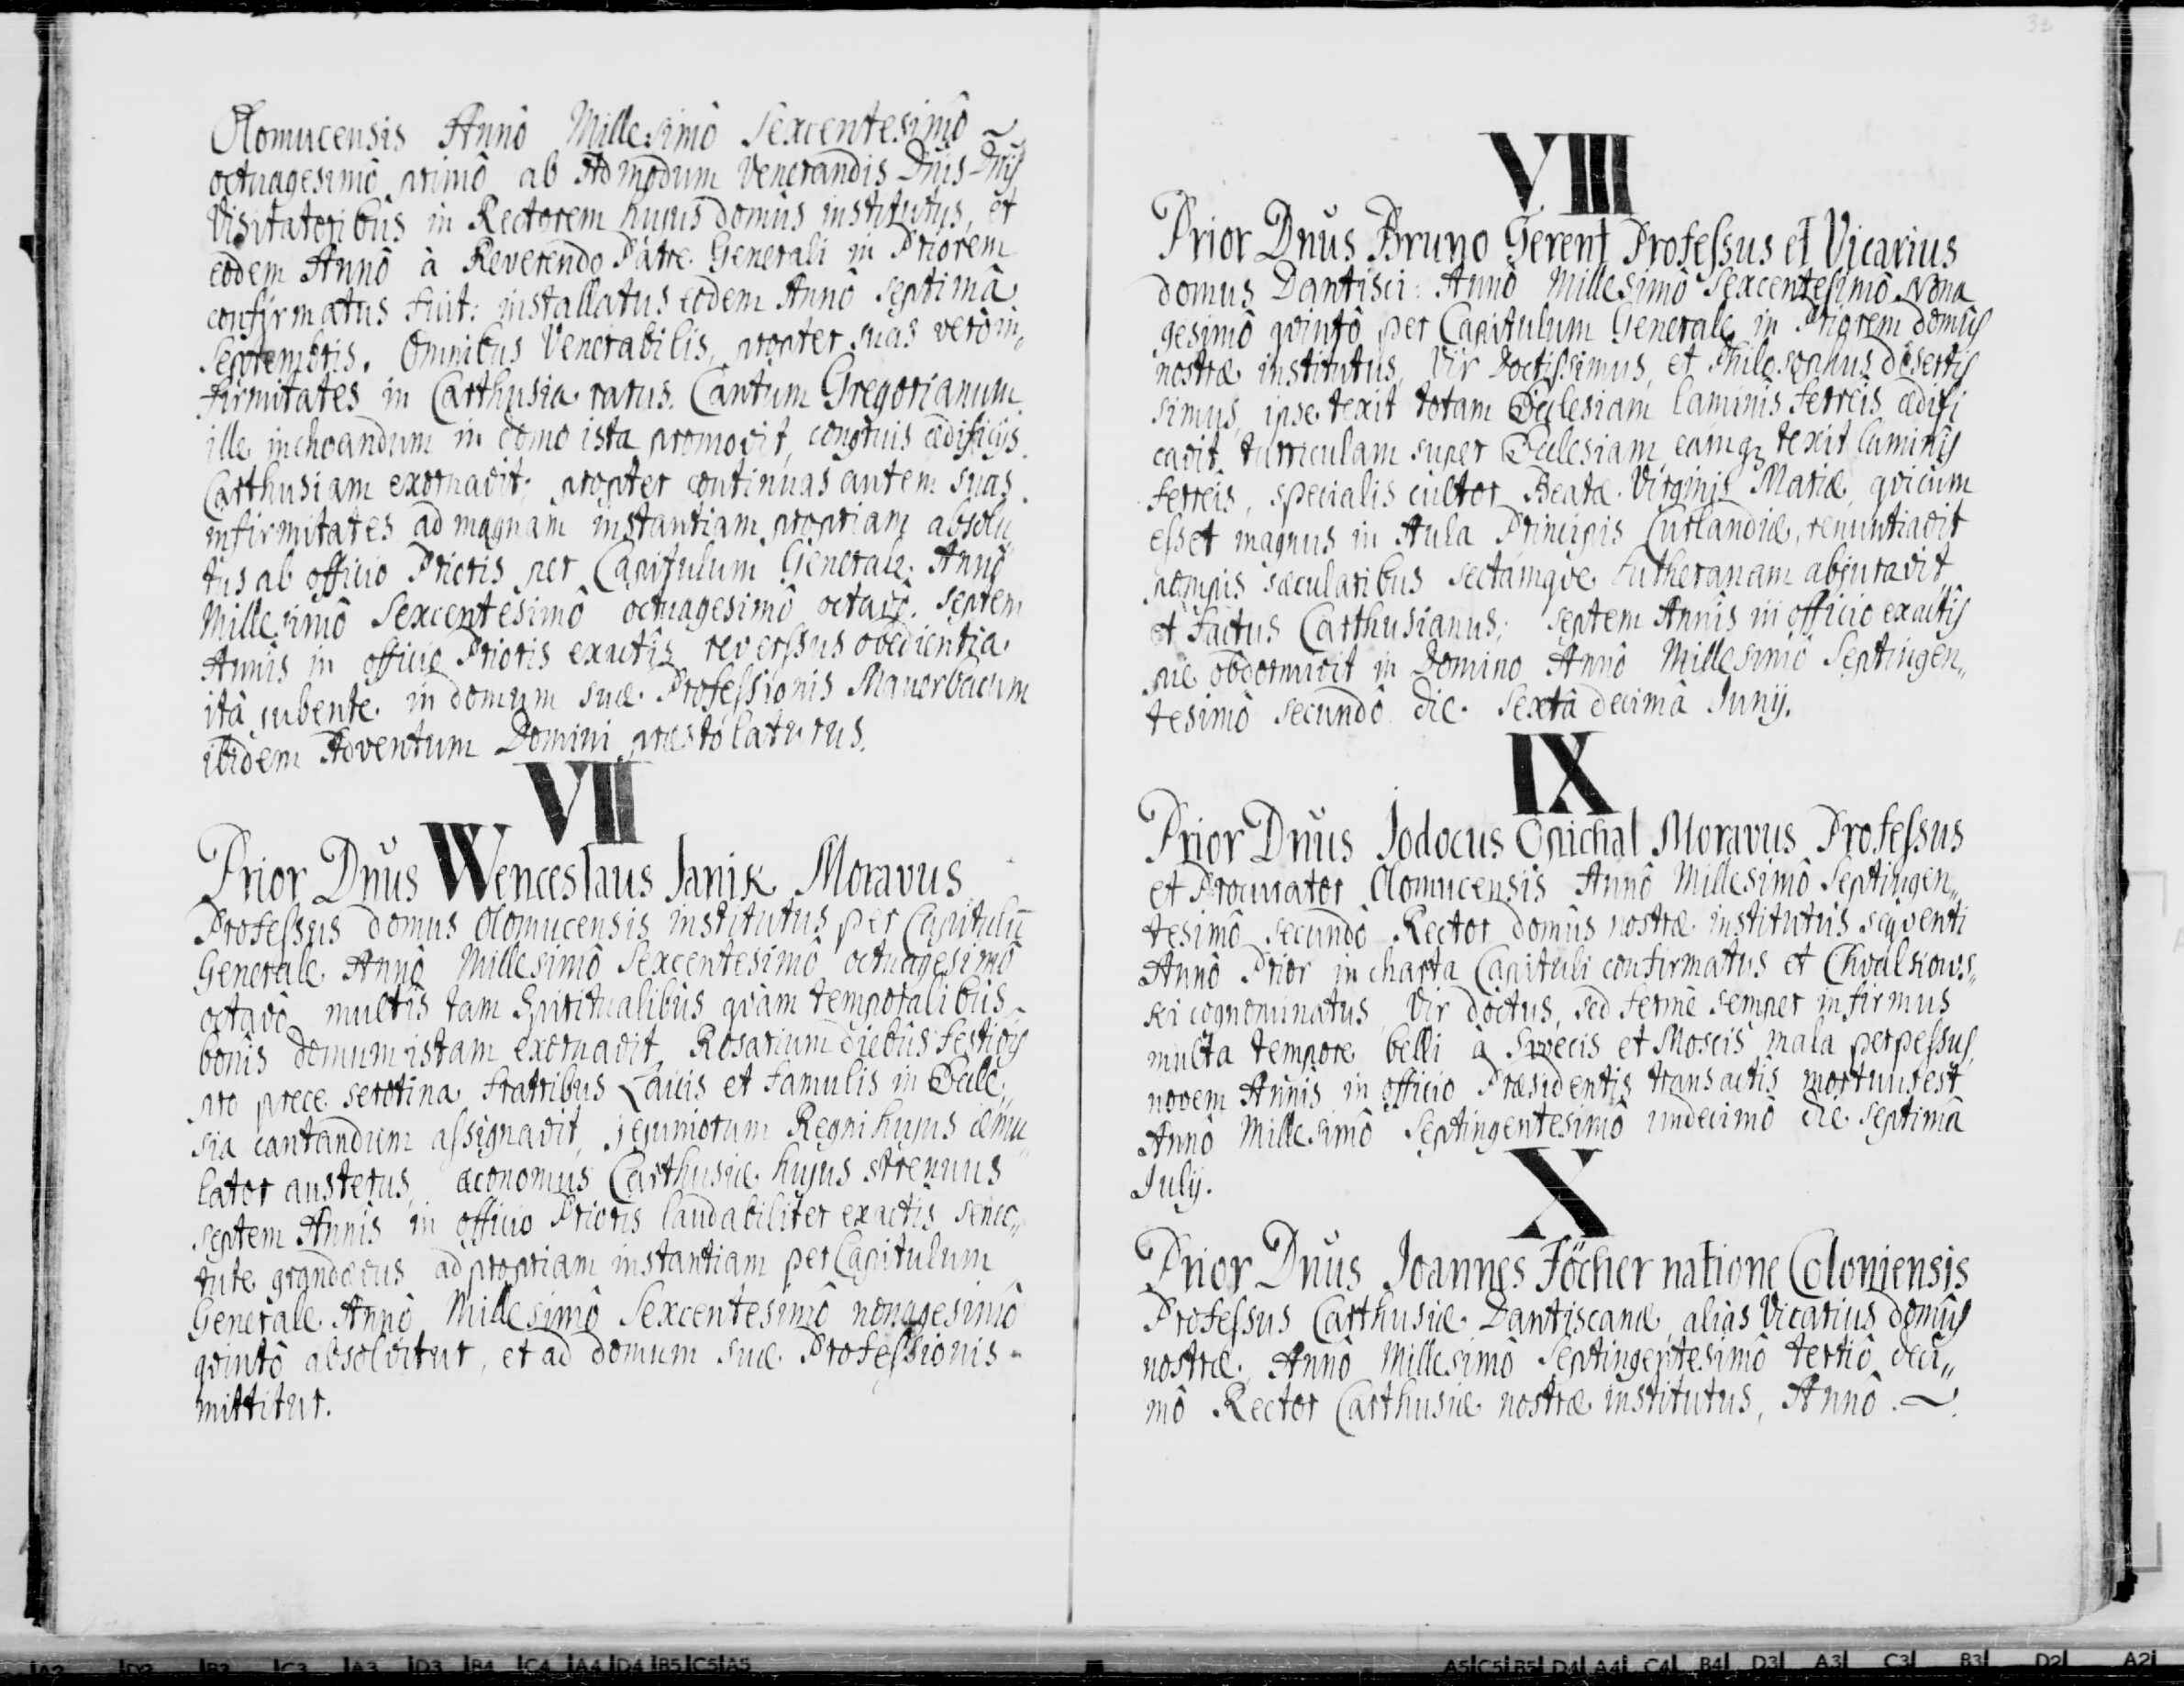 Olomucensis Annô Millesimô Sexcentesimô ~
octuagesimô primô ab Admodum Venerandis Dnis Dnis
Visitatoribus in Rectorem hujus domûs institutus, et
eodem Annô à Reverendo Patre Generali in Priorem
confirmatus fuit: installatus eodem Annô septimâ
Septembris. Omnibus Venerabilis, propter suas verò in„
firmitates in Carthusia rarus. Cantum Gregorianum
ille inchoandum in domo ista promovit, congruis ædificijs
Carthusiam exornavit; propter continuas autem suas
infirmitates ad magnam instantiam propriam absolu„
tus ab officio Prioris per Capitulum Generale Annô
Millesimô Sexcentesimô octuagesimô octavô. Septem
Annis in officio Prioris exactis reverssus obedientia
ità jubente in domum suæ Professionis Mauerbacum
ibidem Adventum Domini præstolaturus.
VII
Prior Dnus Wenceslaus Janik Moravus
Professus domus Olomucensis institutus per Capitulū
Generale Annô Millesimô Sexcentesimô octuagesimô
octavô multis tam Spiritualibus quàm temporalibus
bonis domum istam exornavit, Rosarium diebus festivis
pro prece serotina Fratribus Laicis et Famulis in Eccle„
sia cantandum assignavit, jejuniorum Regni hujus æmu„
lator austerus, æconomus Carthusiæ hujus strenuus
septem Annis in officio Prioris laudabiliter exactis senec„
tute grandævus ad propriam instantiam per Capitulum
Generale Annô Millesimô Sexcentesimô nonagesimô
qvintô absolvitur, et ad domum suæ Professionis
mittitur.
VIII
Prior Dnus Bruno Gerent Professus et Vicarius
domus Dantisci: Annô Millesimô Sexcentesimô nona
gesimô qvintô per Capitulum Generale in Priorem domûs
nostræ institutus, Vir Doctissimus, et Philosophus disertis
simus, ipse texit totam Ecclesiam laminis ferreis, ædifi
cavit turriculam super Ecclesiam eamqz texit laminis
ferreis, specialis cultor Beatæ Virginis Mariæ, qvi cum
esset magnus in Aula Principis Curlandiæ, renuntiavit
pompis sæcularibus sectamqve Lutheranam abjuravit,
et factus Carthusianus; septem Annis in officio exactis
pie obdormivit in Domino Annô Millesimô Septingen„
tesimô secundô die sextâ decimâ Junij.
IX
Prior Dnus Jodocus Opichal Moravus Professus
et Procurator Olomucensis Annô Millesimô Septingen„
tesimô secundô Rector domûs nostræ institutus seqventi
Annô Prior in charta Capituli confirmatus et Chvalkows„
ki cognominatus, Vir doctus, sed fermè semper infirmus
multa tempore belli à Swecis et Moscis mala perpessus,
novem Annis in officio Præsidentis transactis mortuus est
Annô Millesimô Septingentesimô undecimô die septimâ
Julij.
X
Prior Dnus Joannes Föcher natione Coloniensis
Professus Carthusiæ Dantiscanæ, aliàs Vicarius domûs
nostræ, Annô Millesimô Septingentesimô tertiô deci„
mô Rector Carthusiæ nostræ institutus, Annô ~
A2 D2 B3 C3 A3 D3 B4 C4 A4 D4 B5 C5 A5
A5 C5 B5 D4 A4 C4 B4 D3 A3 C3 B3 D2 A2